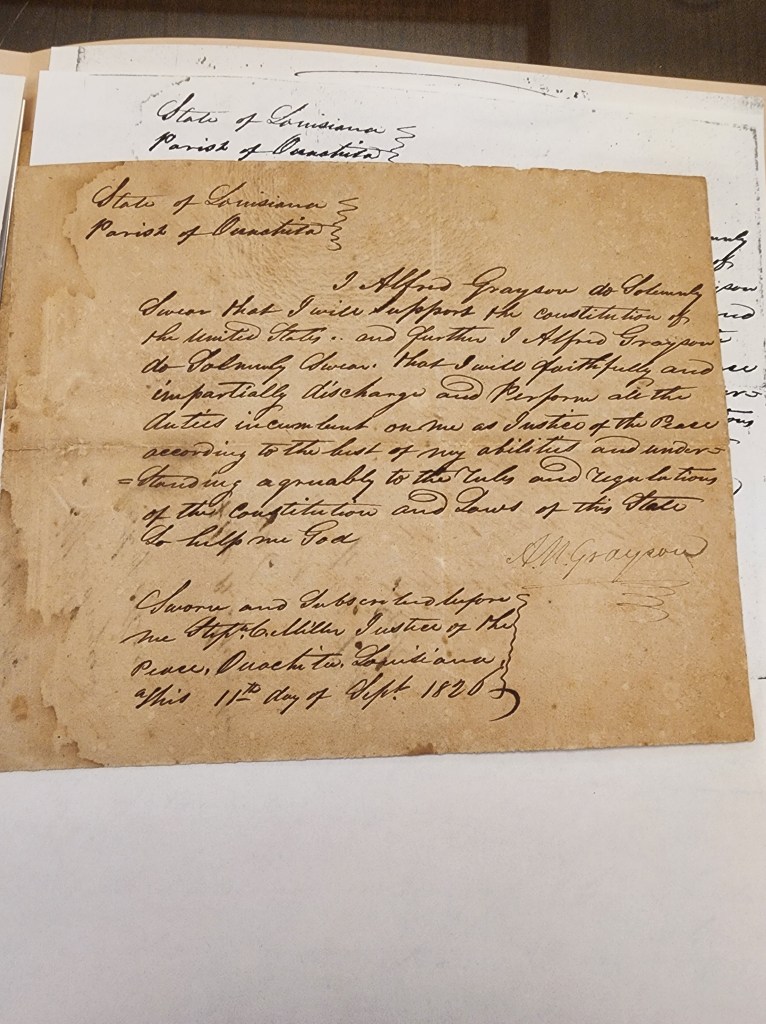 State of Louisiana
Parish of Ouachita
State of Louisiana
Parish of Ouachita
I Alfred Grayson do Solemnly
Swear that I will support the constitution of
the United States.. and further I Alfred Grayson
do Solmnly Swear. that I will faithfully and
impartially discharge and Perform all the
duties incumbent on me as Justice of the Peace
according to the best of my abilities and under=
=standing agreuably to the rules and regulations
of the constitution and Laws of this State
So help me God
A. M. Grayson
Sworn and Subscribed before
me Steph. C. Miller Justice of the
Peace, Ouachita. Louisiana,
this 11th day of Sept. 1820